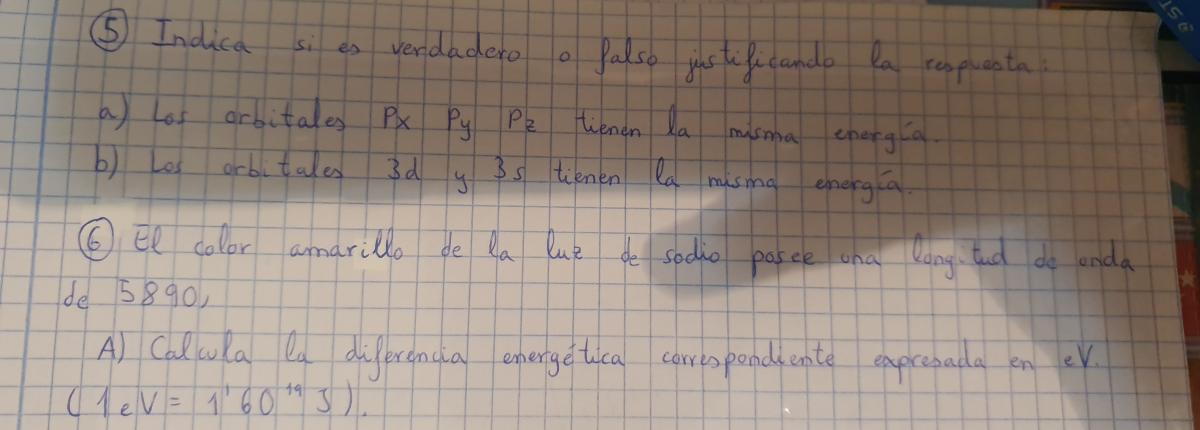 ⑤ Indica si es verdadero o falso justificando la respuesta:
a) Los orbitales Px Py Pz tienen la misma energía.
b) Los orbitales 3d y 3s tienen la misma energía.
⑥ El color amarillo de la luz de sodio posee una longitud de onda
de 5890,
A) Calcula la diferencia energética correspondiente expresada en eV.
(1 eV = 1'60⁻¹⁹ J).